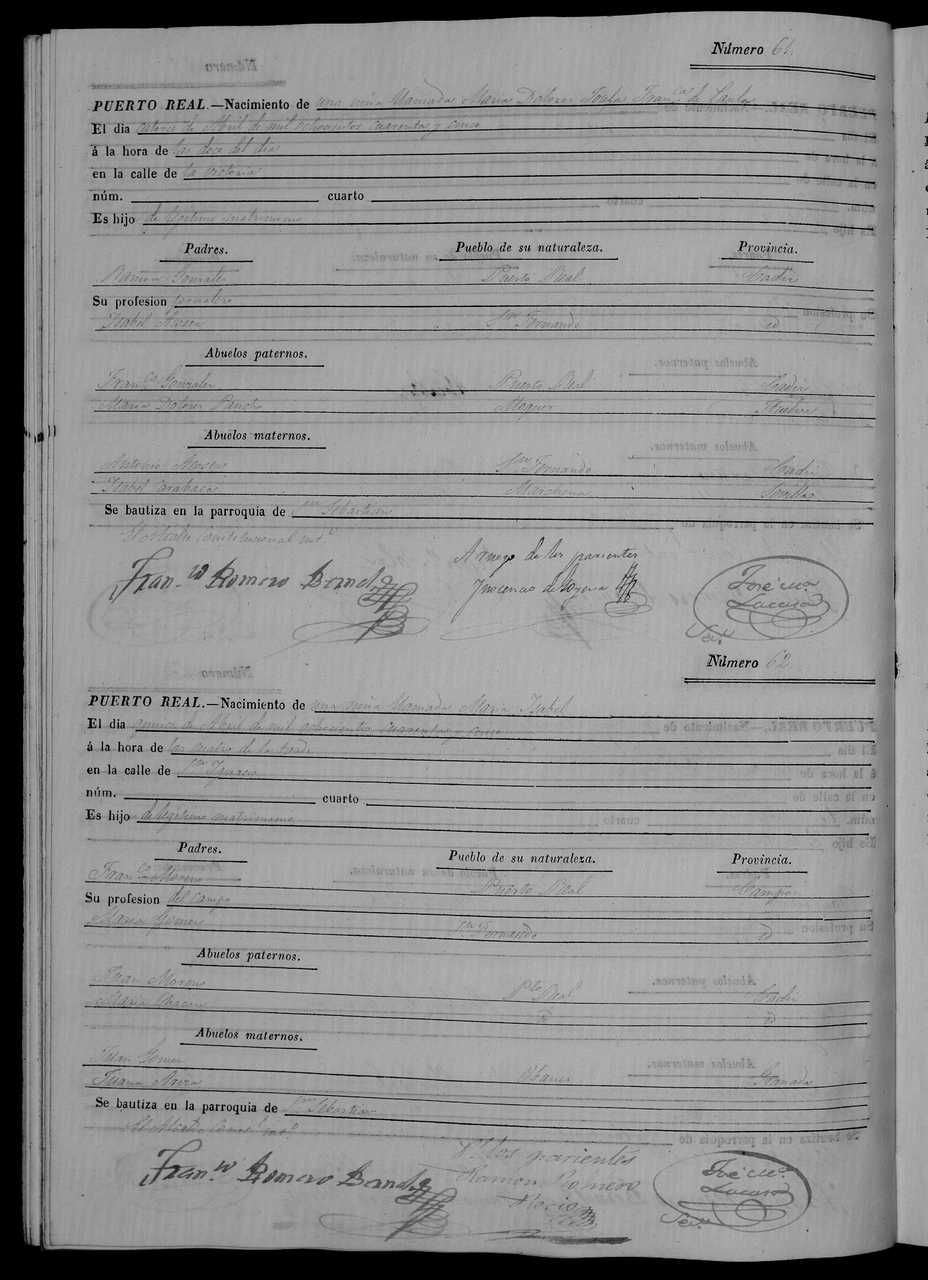 Número 61.
PUERTO REAL.—Nacimiento de una niña llamada Maria Dolores Paula Fran.ca de Paula
El dia catorce de Abril de mil ochocientos cuarenta y cinco
á la hora de las doce del dia
en la calle de la victoria
núm. cuarto
Es hijo de legitimo matrimonio
Padres. Pueblo de su naturaleza. Provincia.
Ramon Gonzalez Puerto Real Cadiz
Su profesion
Isabel Sn Fernando id
Abuelos paternos.
Fran.co Gonzalez Puerto Real Cadiz
Maria Dolores Moguer Huelva
Abuelos maternos.
Antonio Sn Fernando Cadiz
Isabel Marchena Sevilla
Se bautiza en la parroquia de Sn Sebastian
El Alcalde constitucional int.o
Fran.co Romero A ruego de los parientes
Inocencio de José M.a
Lacasa
Srio.
Número 62
PUERTO REAL.—Nacimiento de una niña llamada Maria Isabel
El dia quince de Abril de mil ochocientos cuarenta y cinco
á la hora de las cuatro de la tarde
en la calle de Sn Ignacio
núm. cuarto
Es hijo de legitimo matrimonio
Padres. Pueblo de su naturaleza. Provincia.
Fran.co Moreno Puerto Real
Su profesion del campo
Maria Gomez Sn Fernando id
Abuelos paternos.
Juan Moreno Pto Real Cadiz
Maria id
Abuelos maternos.
Juan Gomez
Juana Granada
Se bautiza en la parroquia de Sn Sebastian
El Alcalde const.l int.o
Fran.co Romero
P. los parientes
Ramon Romero
José M.a
Lacasa
Srio.